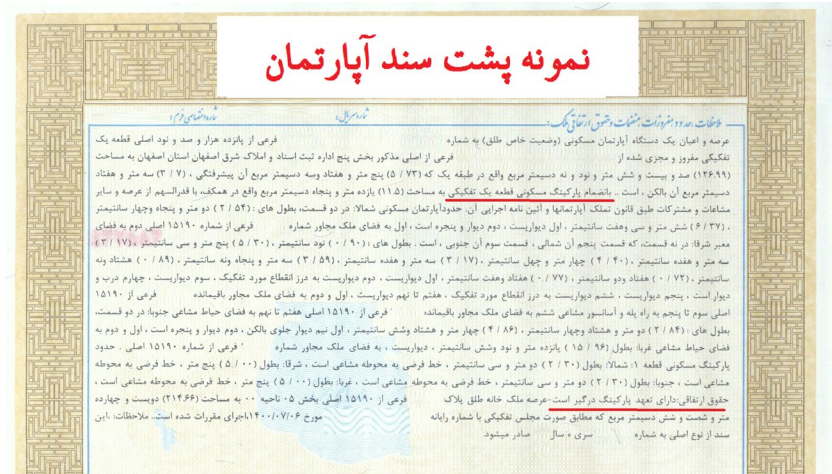 نمونه پشت سند آپارتمان
شماره اختصاصی فرم :
شماره سریال :
ملاحظات حدود مفروزات منضمات و حقوق ارتفاقی ملک :
عرصه و اعیان یک دستگاه آپارتمان مسکونی (وضعیت خاص طلق) به شماره فرعی از پانزده هزار و صد و نود اصلی قطعه یک
تفکیکی مفروز و مجزی شده از فرعی از اصلی مذکور بخش پنج اداره ثبت اسناد و املاک شرق اصفهان استان اصفهان به مساحت
(۱۲۶.۹۹) صد و بیست و شش متر و نود و نه دسیمتر مربع واقع در طبقه یک که (۷۳ / ۵) پنج متر و هفتاد وسه دسیمتر مربع آن پیشرفتگی ، (۷ / ۳) سه متر و هفتاد
دسیمتر مربع آن بالکن ، است .. بانضمام پارکینگ مسکونی قطعه یک تفکیکی به مساحت (۱۱.۵) یازده متر و پنجاه دسیمتر مربع واقع در همکف، با قدرالسهم از عرصه و سایر
مشاعات و مشترکات طبق قانون تملک آپارتمانها و آئین نامه اجرایی آن. حدودآپارتمان مسکونی شمالا: در دو قسمت، بطول های : (۵۴ / ۲) دو متر و پنجاه وچهار سانتیمتر
، (۳۷ / ۶) شش متر و سی وهفت سانتیمتر ، اول دیواریست ، دوم دیوار و پنجره است ، اول به فضای ملک مجاور شماره فرعی از شماره ۱۵۱۹۰ اصلی دوم به فضای
معبر شرقا: در نه قسمت، که قسمت پنجم آن شمالی ، قسمت سوم آن جنوبی ، است . بطول های : (۹۰ / ۰) نود سانتیمتر ، (۳۰ / ۵) پنج متر و سی سانتیمتر ، (۱۷ / ۳)
سه متر و هفده سانتیمتر ، (۴۰ / ۴) چهار متر و چهل سانتیمتر ، (۱۷ / ۳) سه متر و هفده سانتیمتر ، (۵۹ / ۳) سه متر و پنجاه ونه سانتیمتر ، (۸۹ / ۰) هشتاد ونه
سانتیمتر ، (۷۲ / ۰) هفتاد ودو سانتیمتر ، (۷۷ / ۰) هفتاد وهفت سانتیمتر ، اول دیواریست ، دوم دیواریست به درز انقطاع مورد تفکیک ، سوم دیواریست ، چهارم درب و
دیوار است ، پنجم دیواریست ، ششم دیواریست به درز انقطاع مورد تفکیک ، هفتم تا نهم دیواریست ، اول و دوم به فضای ملک مجاور باقیمانده فرعی از ۱۵۱۹۰
اصلی سوم تا پنجم به راه پله و آسانسور مشاعی ششم به فضای ملک مجاور باقیمانده فرعی از ۱۵۱۹۰ اصلی هفتم تا نهم به فضای حیاط مشاعی جنوبا: در دو قسمت،
بطول های : (۸۴ / ۲) دو متر و هشتاد وچهار سانتیمتر ، (۸۶ / ۴) چهار متر و هشتاد وشش سانتیمتر ، اول نیم دیوار جلوی بالکن ، دوم دیوار و پنجره است ، اول و دوم به
فضای حیاط مشاعی غربا: بطول (۹۶ / ۱۵) پانزده متر و نود وشش سانتیمتر ، دیواریست ، به فضای ملک مجاور شماره فرعی از شماره ۱۵۱۹۰ اصلی . حدود
پارکینگ مسکونی قطعه ۱: شمالا: بطول (۳۰ / ۲) دو متر و سی سانتیمتر ، خط فرضی به محوطه مشاعی است ، شرقا: بطول (۰۰ / ۵) پنج متر ، خط فرضی به محوطه
مشاعی است ، جنوبا: بطول (۳۰ / ۲) دو متر و سی سانتیمتر ، خط فرضی به محوطه مشاعی است ، غربا: بطول (۰۰ / ۵) پنج متر ، خط فرضی به محوطه مشاعی است ،
حقوق ارتفاقی:دارای تعهد پارکینگ درگیر است-عرصه ملک خانه طلق پلاک فرعی از ۱۵۱۹۰ اصلی بخش ۰۵ ناحیه ۰۰ به مساحت (۲۱۴.۶۶) دویست و چهارده
متر و شصت و شش دسیمتر مربع که مطابق صورت مجلس تفکیکی با شماره رایانه مورخ ۱۴۰۰/۰۷/۰۶اجرای مقررات شده است.. ملاحظات: ،این
سند از نوع اصلی به شماره سری ه سال صادر میشود.